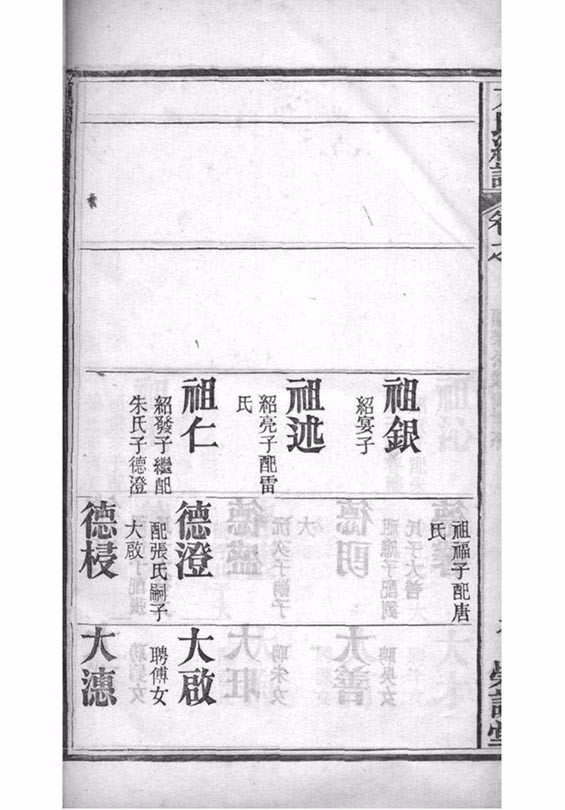 祖銀
紹宴子
祖述
紹亮子配雷
氏
祖仁
紹發子繼配
朱氏子德澄
祖福子配唐
氏
德澄
配張氏嗣子
大啟
德梫
大啟
聘傅女
大漶